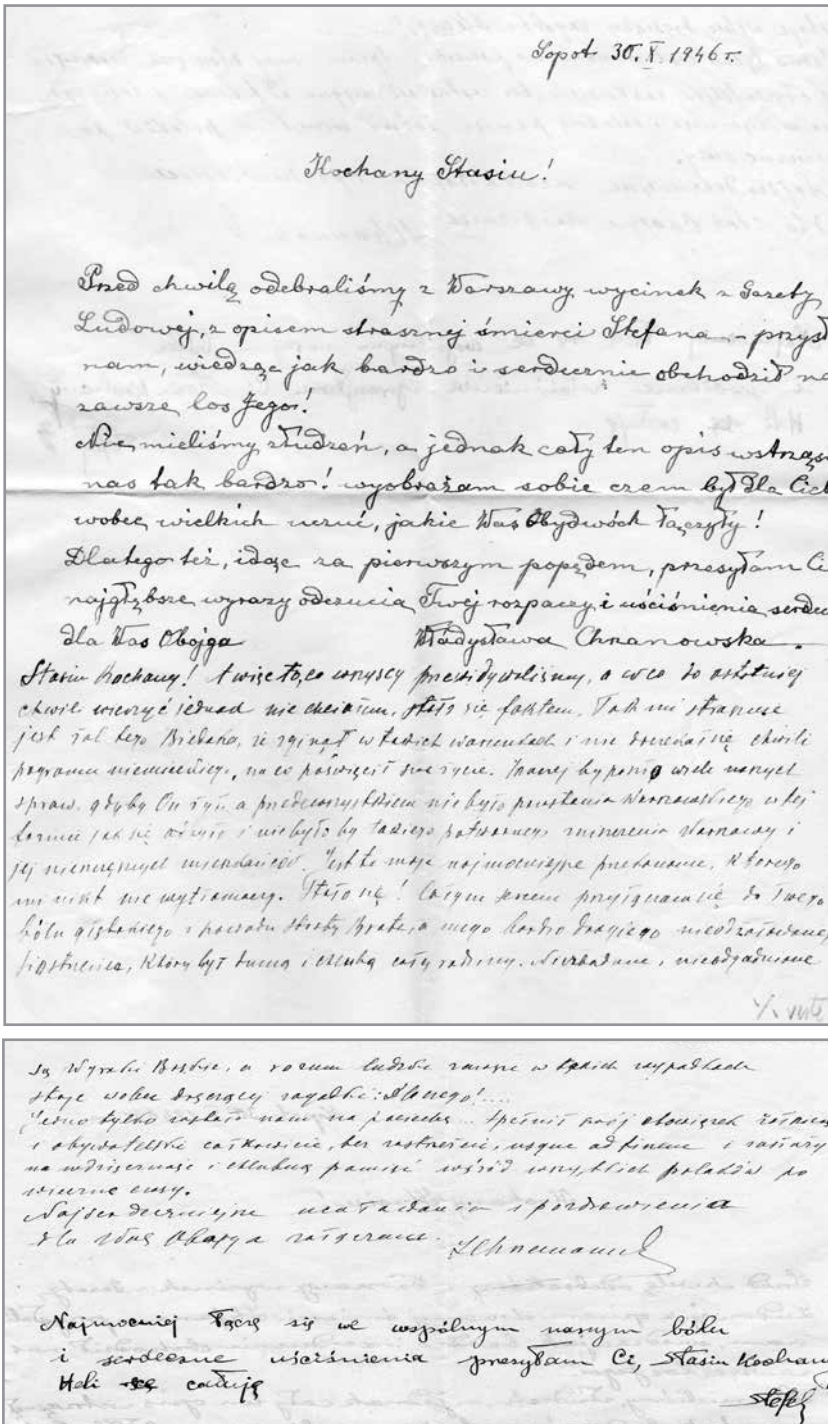 Sopot 30.X 1946 r.
Kochany Stasiu!
Przed chwilą odebraliśmy z Warszawy wycinek z Gazety
Ludowej, z opisem strasznej śmierci Stefana – przysł
nam, wiedząc jak bardzo i serdecznie obchodził na
zawsze los Jego!
Nie mieliśmy złudzeń, a jednak cały ten opis wstrząsn
nas tak bardzo! wyobrażam sobie czem był dla Cieb
wobec wielkich uczuć, jakie Was Obydwóch łączyły!
Dlatego też, idąc za pierwszym popędem, przesyłam Ci
najgłębsze wyrazy odczucia Twej rozpaczy i uściśnienia serdec
dla Was Obojga Władysława Chrzanowska.
Stasiu Kochany! A więc to, co wszyscy przewidywaliśmy, a w co do ostatniej
chwili wierzyć jednak nie chciałem, stało się faktem. Tak mi strasznie
jest żal tego Biedaka, że zginął w takich warunkach i nie doczekał się chwili
pogromu niemieckiego, na co poświęcił swe życie. Inaczej by poszło wiele naszych
spraw, gdyby On żył a przedewszystkiem nie było powstania Warszawskiego w tej
formie jak się odbyło i nie byłoby takiego potwornego zniszczenia Warszawy i
jej nieszczęsnych mieszkańców. Jest to moje najmocniejsze przekonanie, którego
mi nikt nie wytłomaczy. Stało się! Całym sercem przyłączam się do Twego
bólu głębokiego z powodu straty Brata, a mego bardzo drogiego nieodżałowanego
siostrzeńca, który był dumą i chlubą całej rodziny. Niezbadane, nieodgadnione
%. verte
są Wyroki Boskie, a rozum ludzki zawsze w takich wypadkach
staje wobec dręczącej zagadki: Dlaczego!....
Jedno tylko zostało nam na pociechę.. Spełnił swój obowiązek żołniers
i obywatelski całkowicie, bez zastrzeżeń, usque ad finem i zasłuży
na wdzięczność i chlubną pamięć wśród wszystkich polaków po
wieczne czasy.
Najserdeczniejsze ucałowania i pozdrowienia
dla Was Obojga załączam.
Najmocniej łączę się we wspólnym naszym bólu
i serdeczne uściśnienia przesyłam Ci, Stasiu Kochany
Heli całuję
Stefek